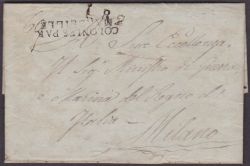 COLONIES PAR
MARSEILLE
Sua Eccellenza
Il Sig. Ministro di Guerra
e Marina del Regno d'
Italia
Milano